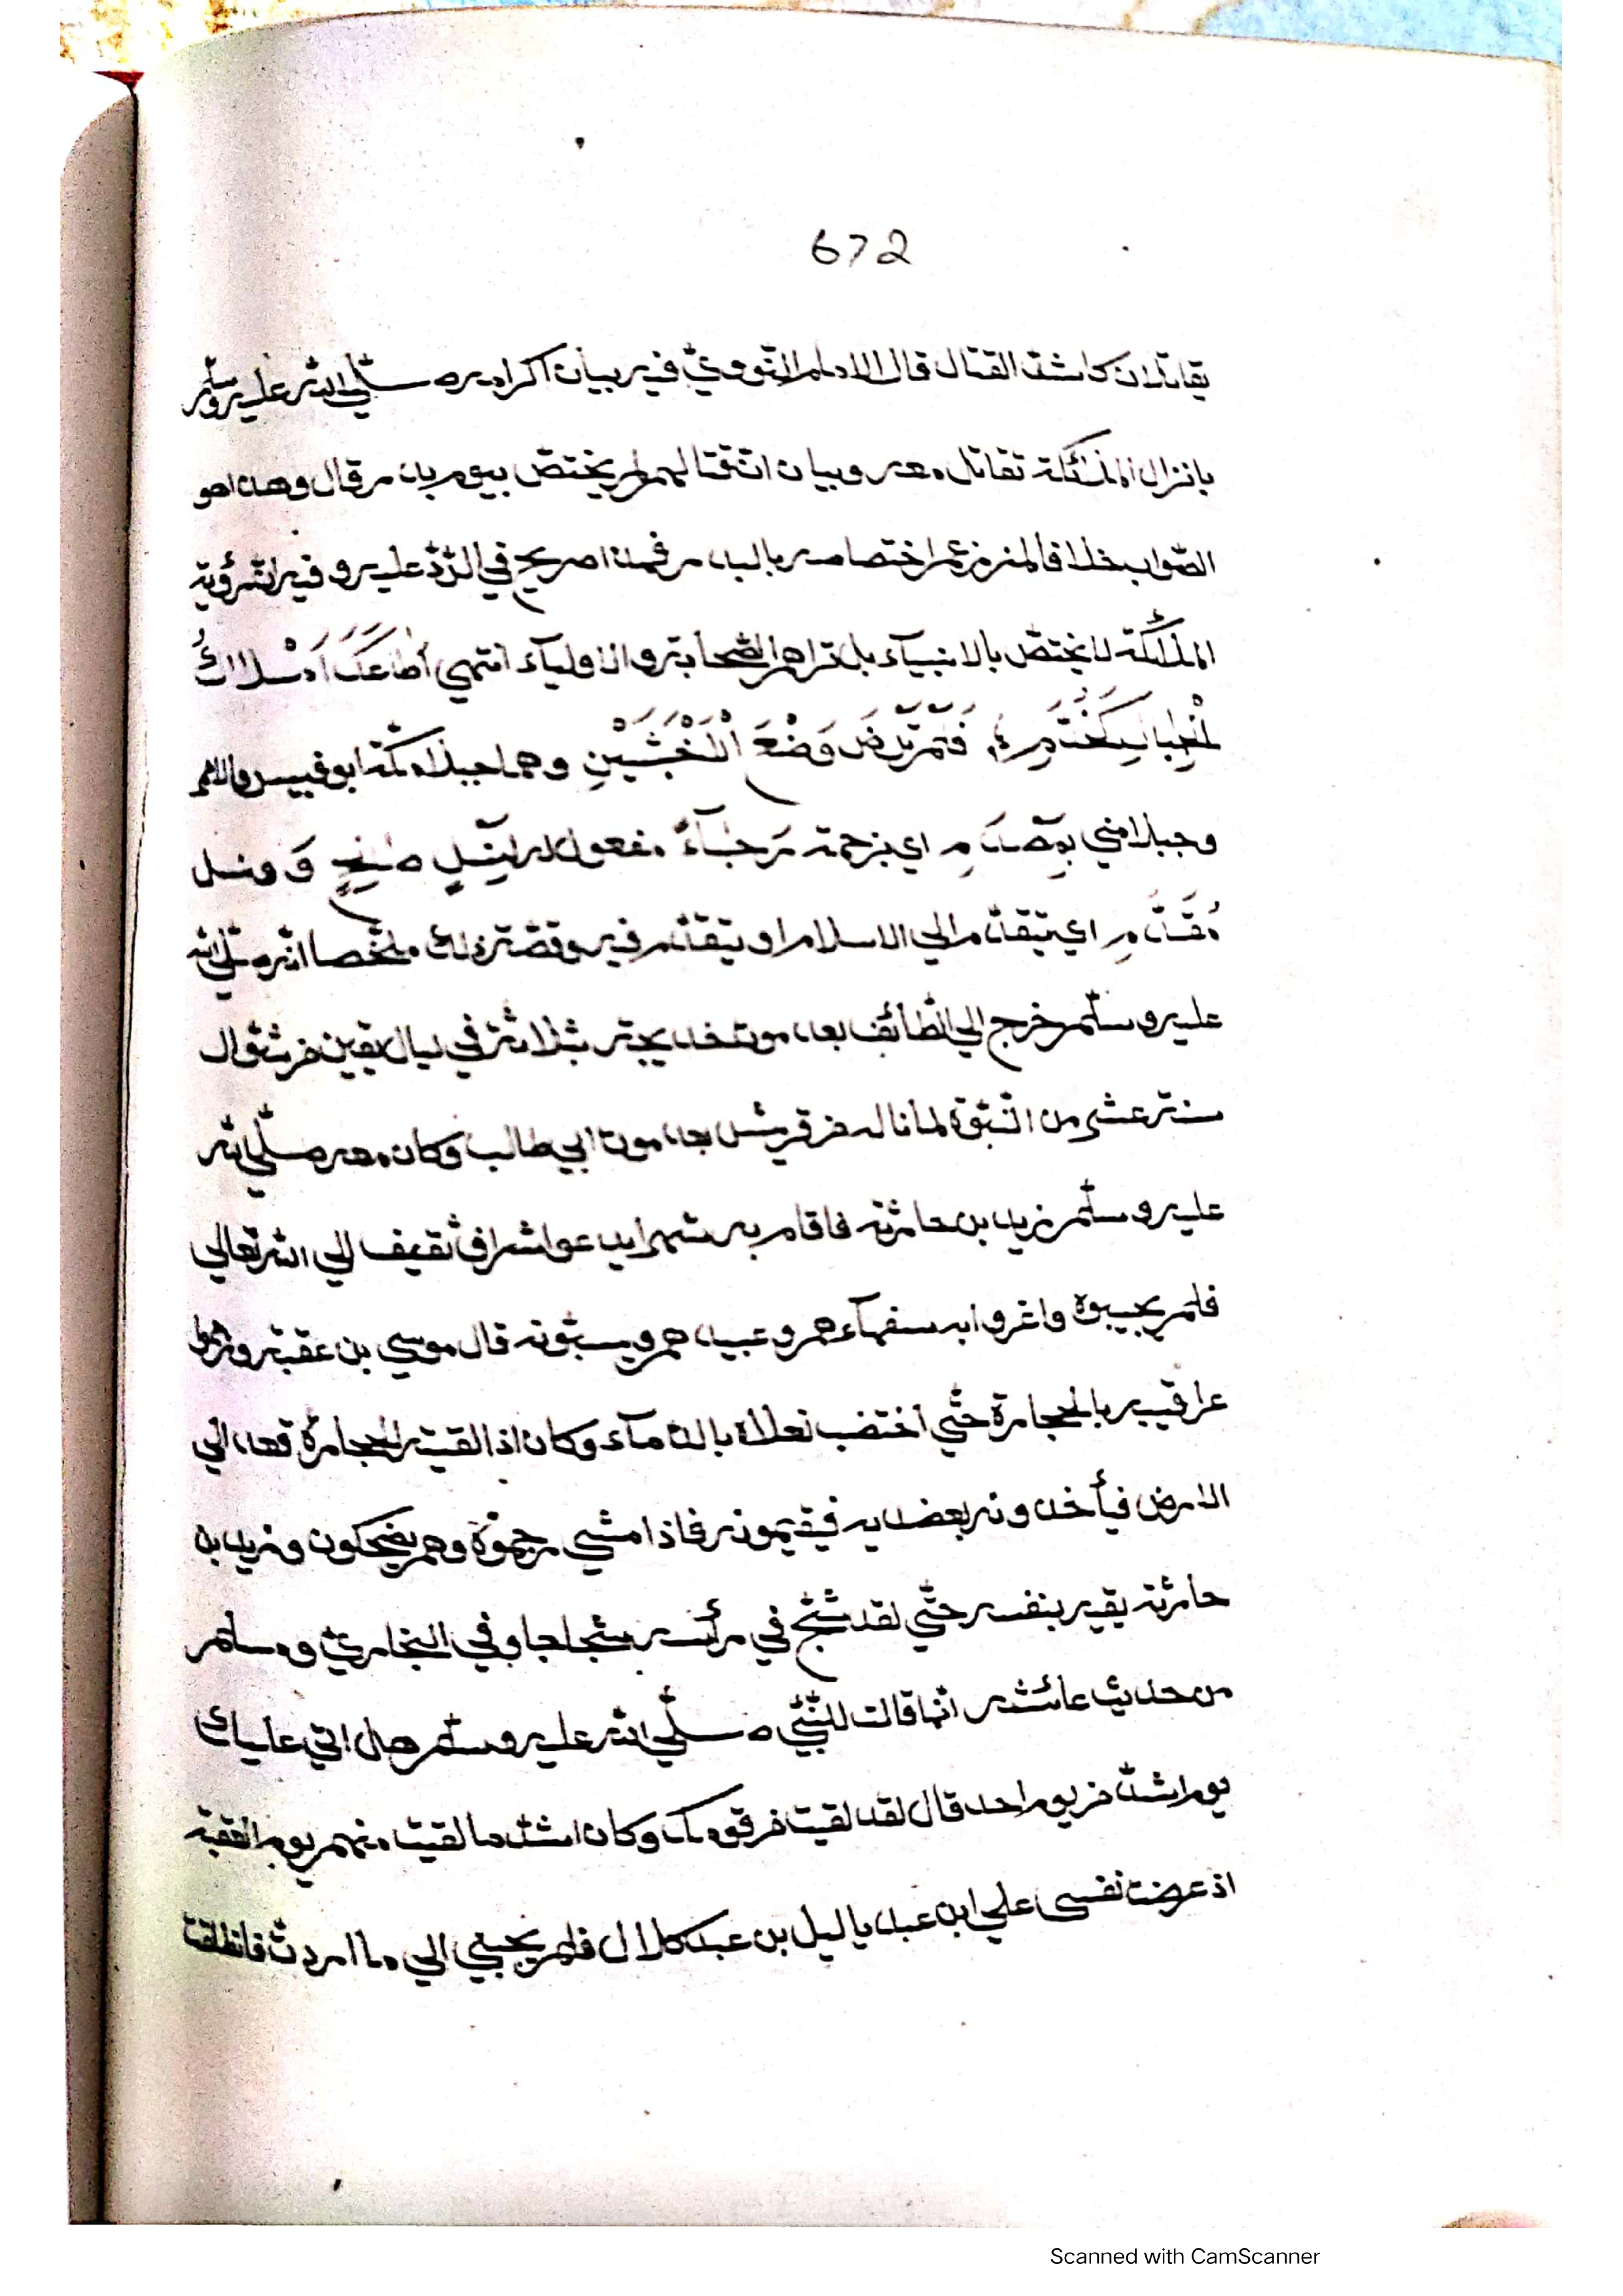 672
يقاتلان كاشد القتال قال الامام النّوويّ فيه بيان اكرامه صلّي الله عليه وسلّم
بانزال الملئكة تقاتل معه وبيان انّ قتالهم لم يختصّ بيوم بدر قال وهذا هو
الصّواب خلافا لمن زعم اختصاصه بالبدر فهذا صريح في الرّدّ عليه وفيه انّ رؤية
الملئكة لا يختصّ بالانبيآء بل تراهم الصّحابة والاوليآء انتهي أَطَاعَكَ اَمْلَاكُ
الْجِبَالِ كَخُدَّمٍ فَلَمْ تَرْضَ وَضْعَ الْاَخْشَبَيْنِ وهما جبلا مكّة ابو قبيس والاحمر
وجبلا مني بِمَصْدَمِ اي بزحمة رَجَآءً مفعول له لِنَسْلٍ صَالِحٍ وَ نسل
مُقَدَّمِ اي يتقدّم الي الاسلام او يتقدّم فيه وقصّة ذلك ملخّصا انّه صلّي الله
عليه وسلّم خرج الي الطّائف بعد موت خديجة بثلاثة في ليال بقين من شوّال
سنة عشر من النّبوّة لما ناله من قريش بعد موت ابي طالب وكان معه صلّي الله
عليه وسلّم زيد بن حارثة فاقام به شهرا يدعو اشراف ثقيف الي الله تعالي
فلم يجيبوه واغروا به سفهآءهم وعبيدهم ويسبّونه قال موسي بن عقبة ورموا
عراقيبه بالحجارة حتّي اختضب نعلاه بالدّمآء وكان اذا القيته الحجارة قعد الي
الارض فيأخذونه بعضديه فيقيمونه فاذا مشي رجموه وهم يضحكون وزيد بن
حارثة يقيه بنفسه حتّي لقد شجّ في رأسه شجاجا وفي البخاريّ ومسلم
من حديث عائشة انّها قالت للنّبيّ صلّي الله عليه وسلّم هل اتي عليك
يوم اشدّ من يوم احد قال لقد لقيت من قومك وكان اشدّ ما لقيت منهم يوم العقبة
اذ عرضت نفسي علي ابن عبد ياليل بن عبد كلال فلم يجبني الي ما اردت فانطلقت
Scanned with CamScanner